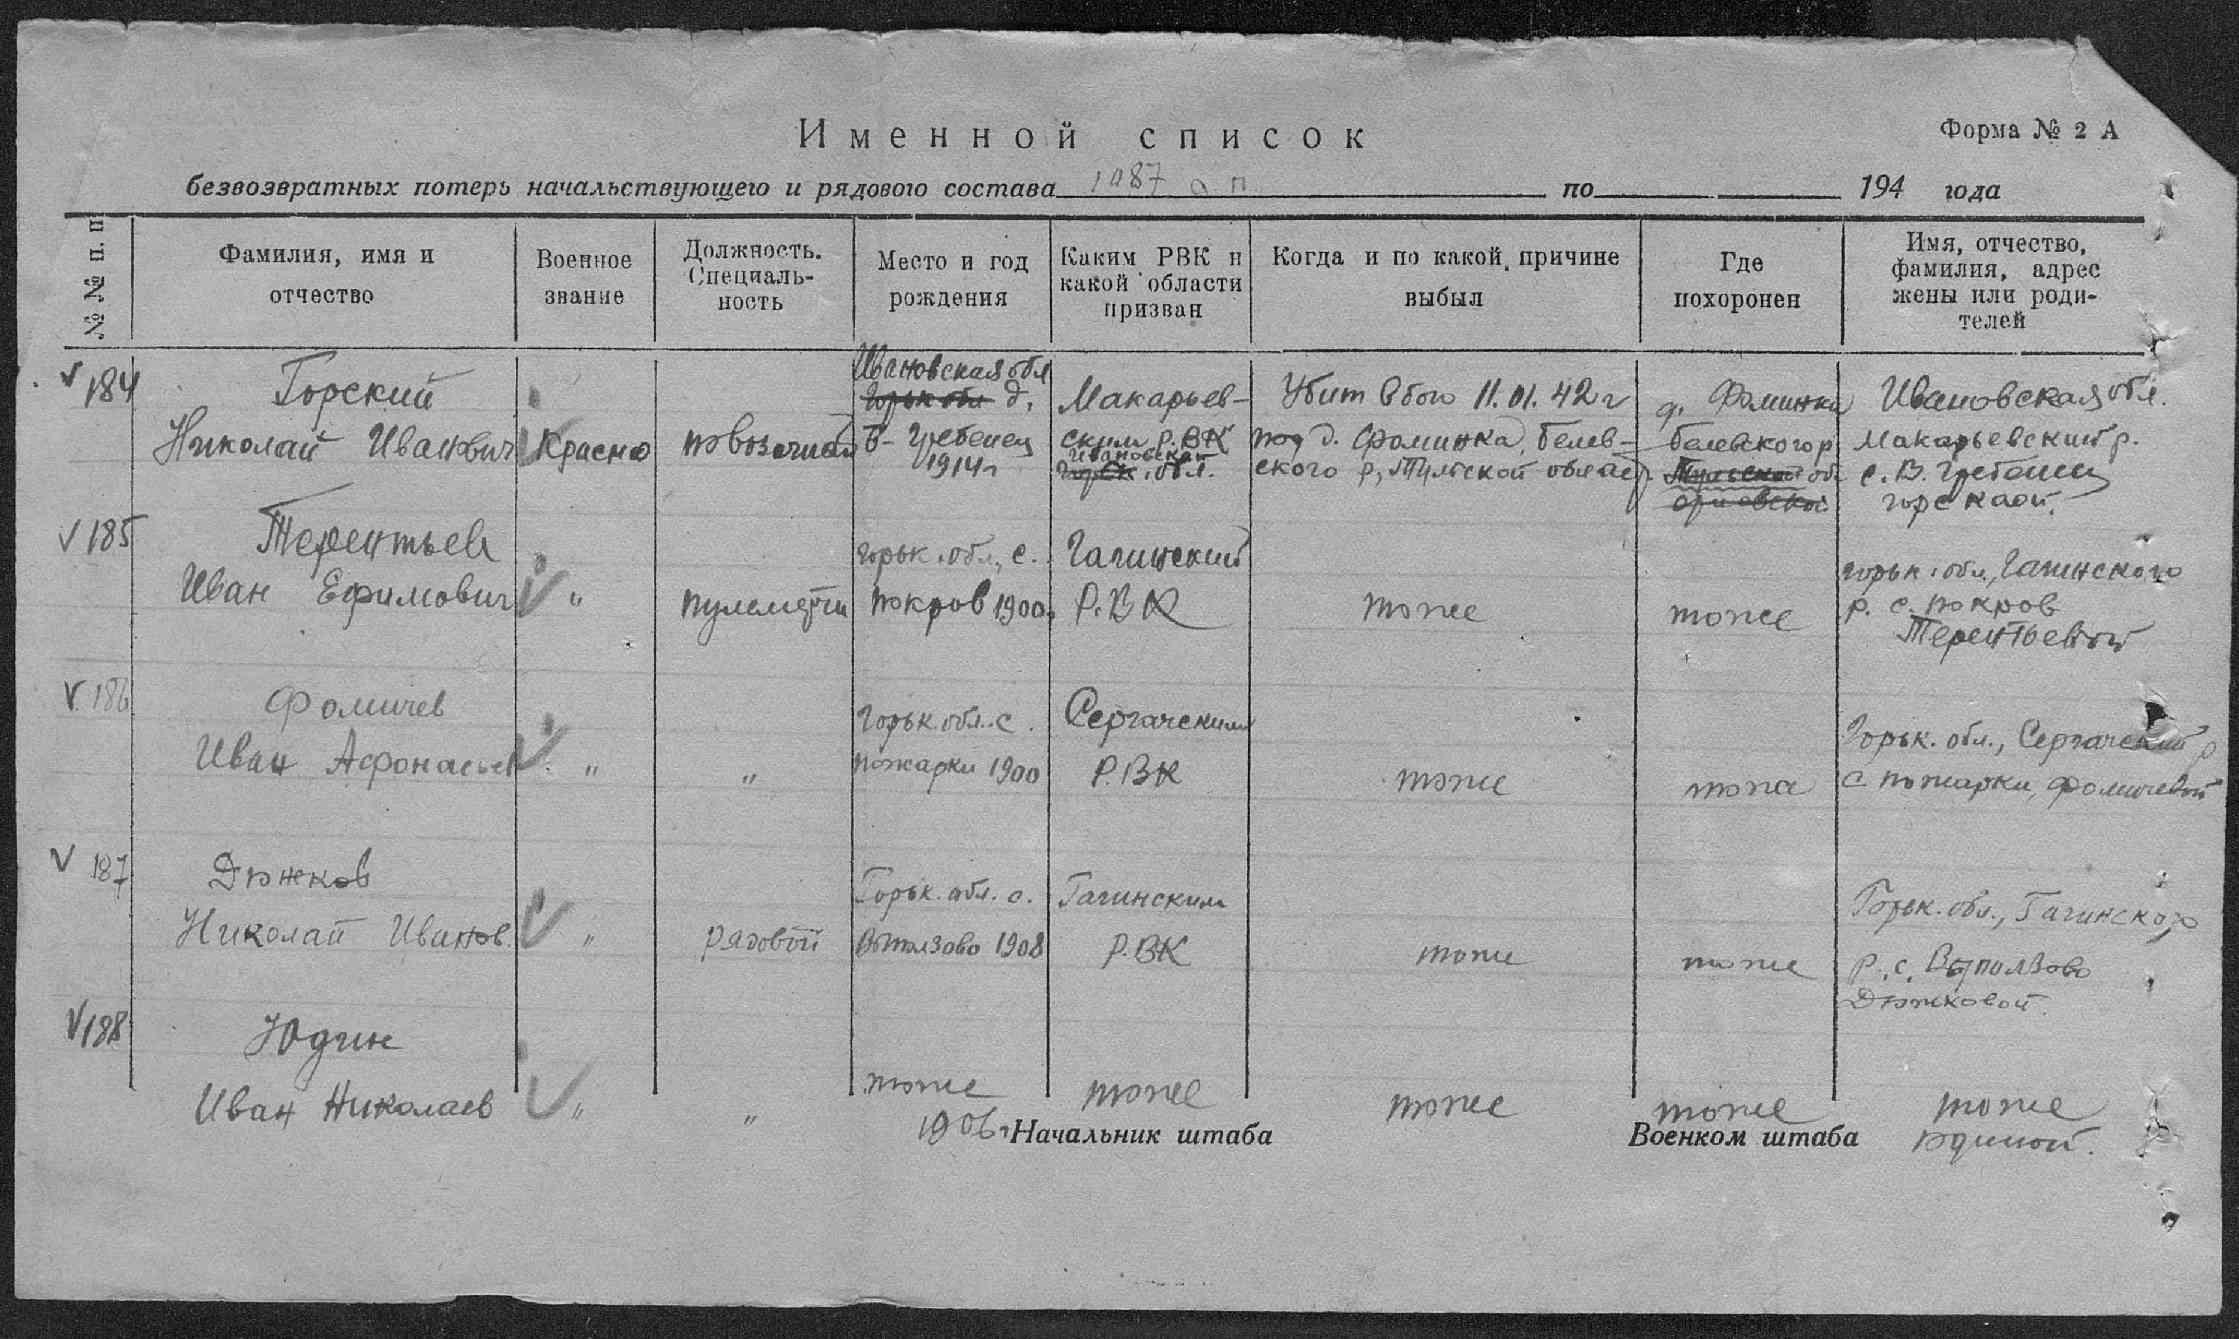 Именной список
Форма № 2 А
безвозвратных потерь начальствующего и рядового состава 1087 с п по 194 года
№ № п. п
Фамилия, имя и
отчество
Военное
звание
Должность.
Специаль-
ность
Место и год
рождения
Каким РВК и
какой области
призван
Когда и по какой причине
выбыл
Где
похоронен
Имя, отчество,
фамилия, адрес
жены или роди-
телей
184
Горский
Николай Иванович
Красно
повозочный
Ивановская обл
Горьк обл д.
В-Гребенец
1914г
Макарьев-
ским Р.ВК
Ивановская
Горьк. обл.
Убит в бою 11.01.42 г
под д. Фоминка, Белев-
ского р, Тульской област
д. Фоминка
Белевского р
Тульской об
орловской
Ивановская обл.
Макарьевский р.
с. В. Гребенец
Горскаой.
185
Терентьев
Иван Ефимович
"
пулеметчи
Горьк. обл., с.
Покров 1900
Гагинский
Р.ВК
тоже
тоже
Горьк. обл., Гагинского
р. с. Покров
Терентьевой
186
Фомичев
Иван Афонасьев
"
"
Горьк. обл. с.
Пожарки 1900
Сергачским
Р.ВК
тоже
тоже
Горьк. обл., Сергачский р
с Пожарки, Фомичевой
187
Дюжков
Николай Иванов.
"
рядовой
Горьк. обл. с.
Выползово 1908
Гагинским
Р.ВК
тоже
тоже
Горьк. обл., Гагинского
р., с. Выползово
Дюжковой.
188
Юдин
Иван Николаев
"
"
тоже
1906г
тоже
тоже
тоже
тоже
Юдиной.
Начальник штаба
Военком штаба